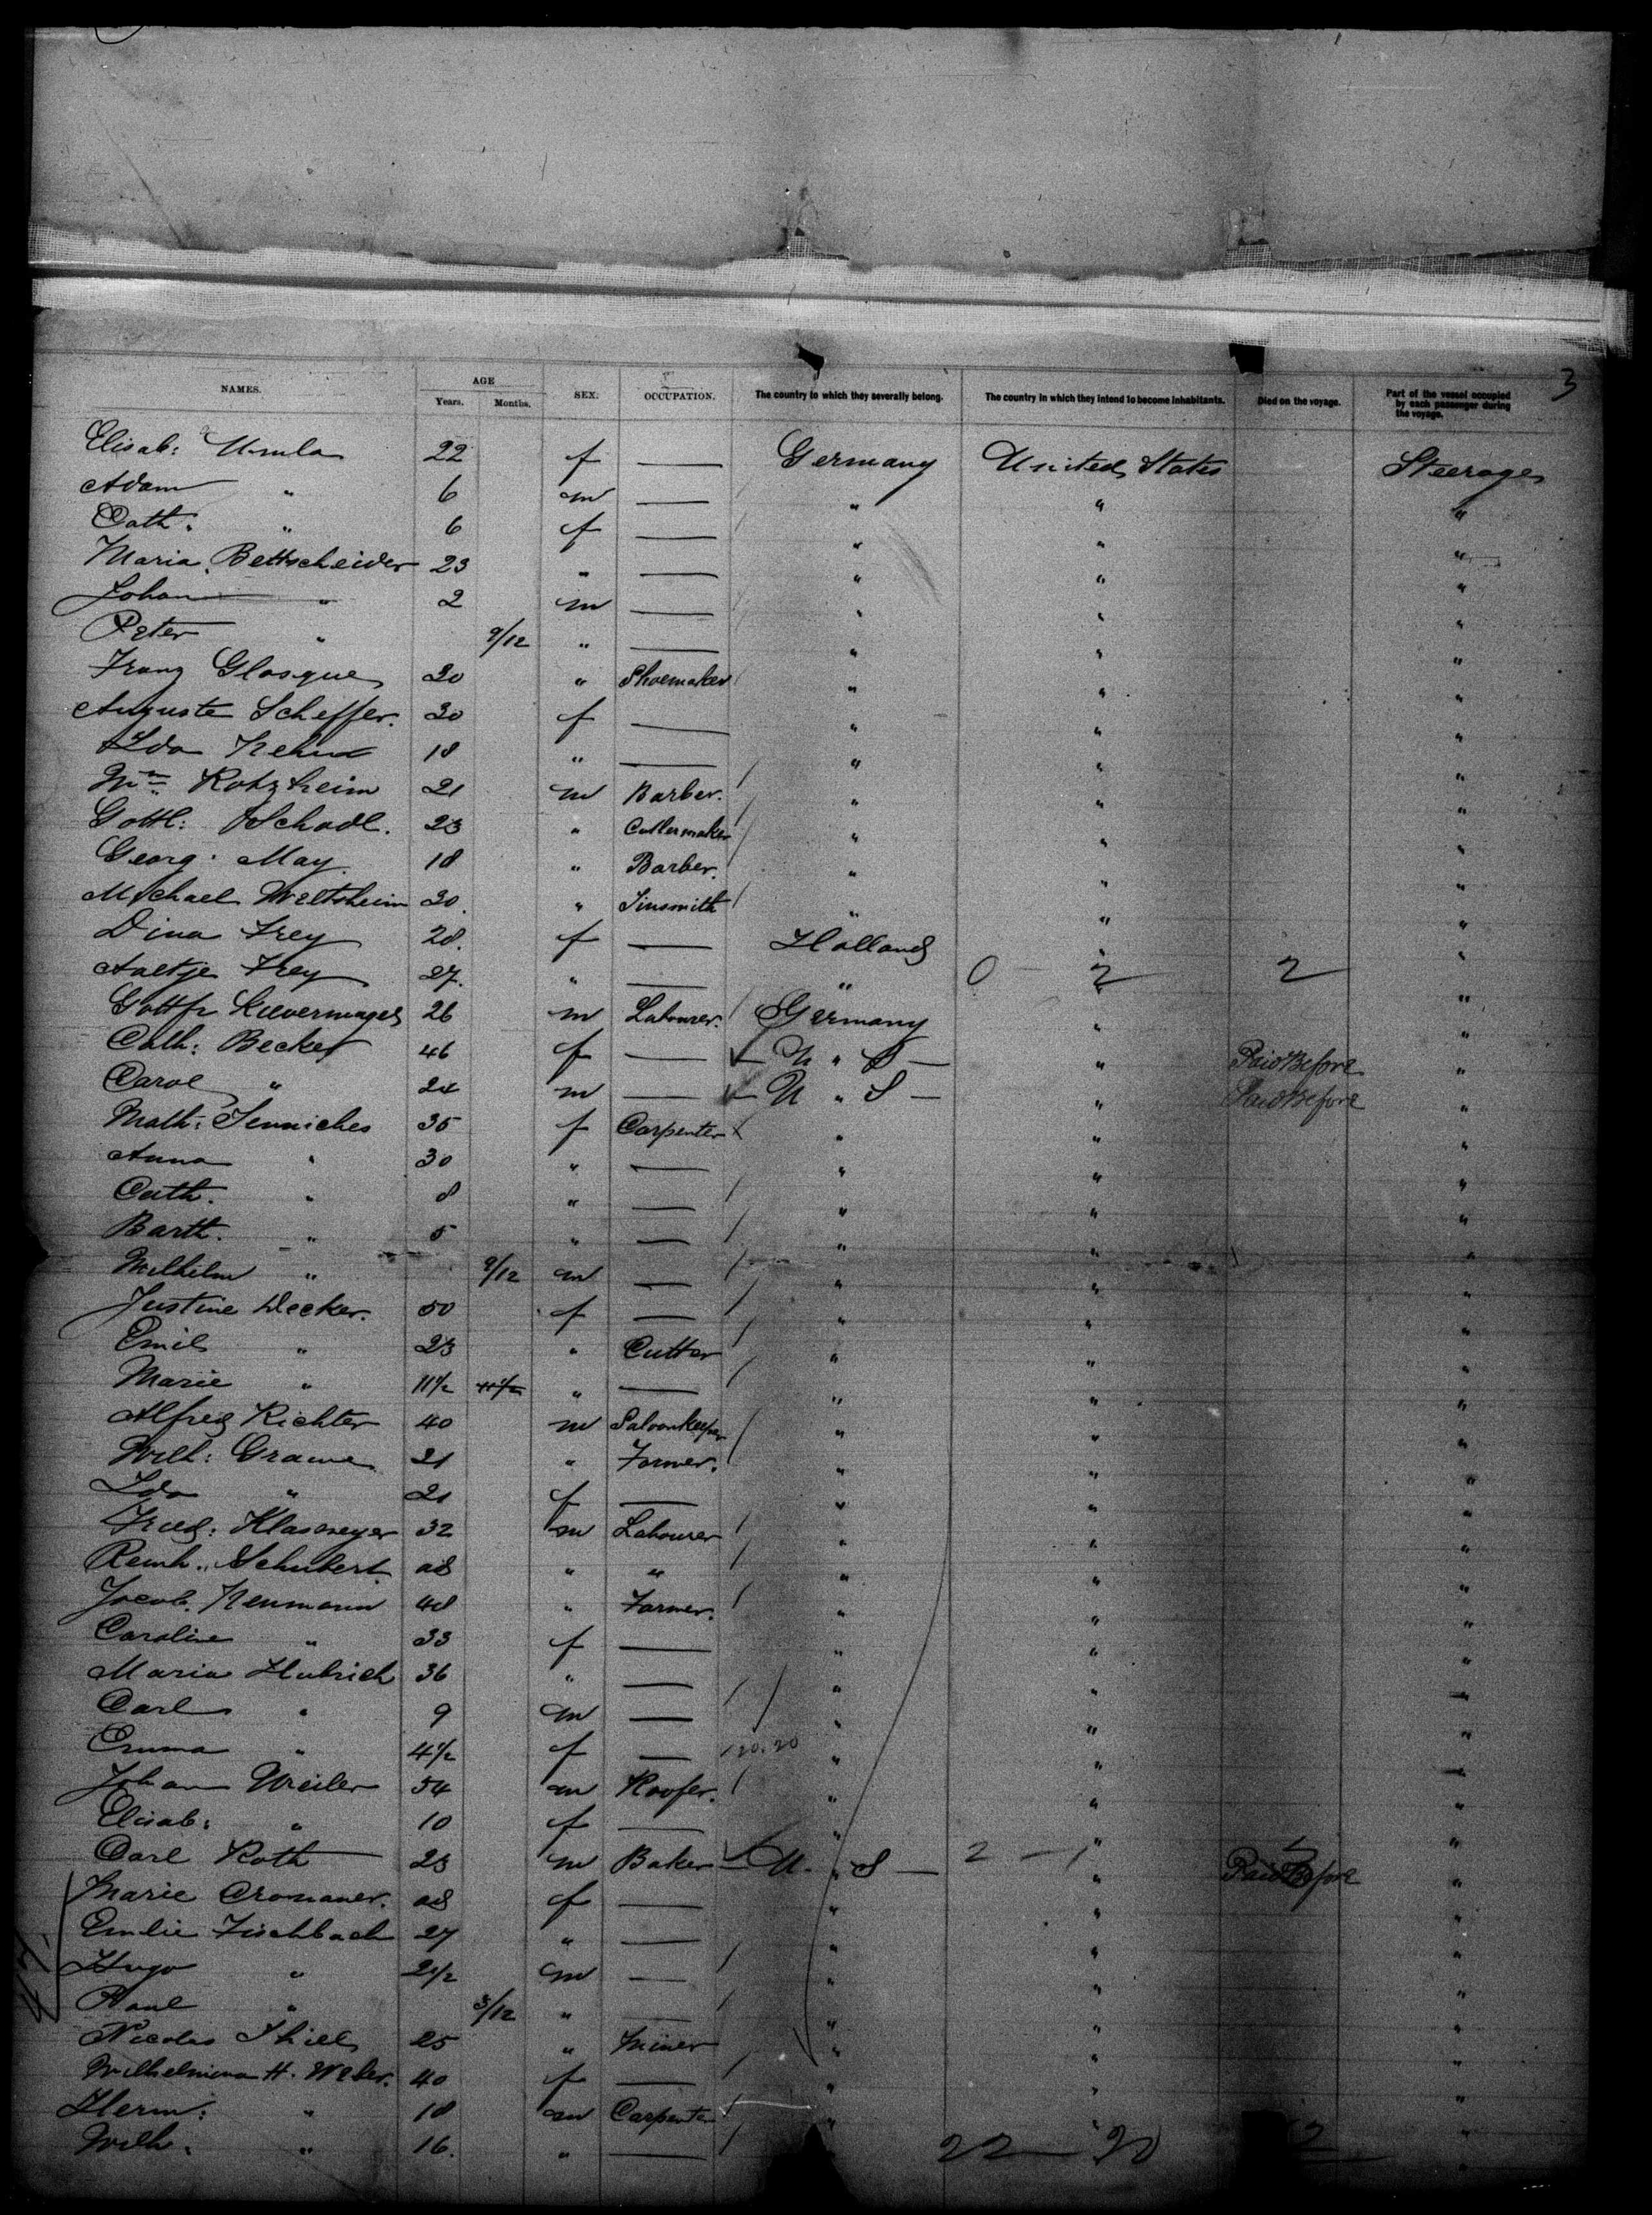 3
NAMES. AGE Years. Months. SEX. OCCUPATION. The country to which they severally belong. The country in which they intend to become inhabitants. Died on the voyage. Part of the vessel occupied by each passenger during the voyage.
Elisab: Ursula 22 f — Germany United States Steerage
Adam " 6 m — " " "
Cath: " 6 f — " " "
Maria Bettscheider 23 " — " " "
Johan " 2 m — " " "
Peter " 9/12 " — " " "
Franz Glasque 20 " Shoemaker " " "
Auguste Scheffer. 20 f — " " "
Ida 18 " — " " "
Wm Rotzheim 21 m Barber. " " "
Gottl: Schadl. 23 " " " "
Georg May 18 " Barber. " " "
Michael Weltsheim 30. " Tinsmith " " "
Dina Frey 28. f — Holland "
Aaltje Frey 27. " — " 0 2 2 "
Gottfr 26 m Labourer. Germany " "
Cath: Becker 46 f — U " S — " Paid Before "
Carol " 24 m — U " S — " Paid Before "
Math: Jenniches 35 f Carpenter " " "
Anna " 30 " — " " "
Cath. " 8 " — " " "
Barth. " 5 " — " " "
Wilhelm " 9/12 m — " " "
Justine Decker. 50 f — " " "
Emil " 23 " Cutter " " "
Marie " 11½ 11½ " — " " "
Alfred Richter 40 m Saloonkeeper " " "
Wilh: Grawe 21 " Farmer. " " "
Ida " 21 f — " " "
Fried: Klasmeyer 32 m Labourer " " "
Reinh. Schubert 28 " " " " "
Jacob. Neumann 48 " Farmer. " " "
Caroline " 33 f — " " "
Maria Hubrich 36 " — " " "
Carl " 9 m — " " "
Emma " 4½ f — 20.20 " " "
Johan Weiler 54 m Roofer. " " "
Elisab: " 10 f — " " "
Carl Roth 23 m Baker — U. " S — 2 — 1 " Paid Before "
Marie Cromauer. 28 f — " " "
Emilie Fischbach 27 " — " " "
Hugo " 2½ m — " " "
Paul " 3/12 " — " " "
Nicolas Thill 25 " Miner " " "
Wilhelmina H. Weber. 40 f — " " "
Herm: " 18 m Carpenter " " "
Wilh. " 16. " — " 22 — 20 2 "